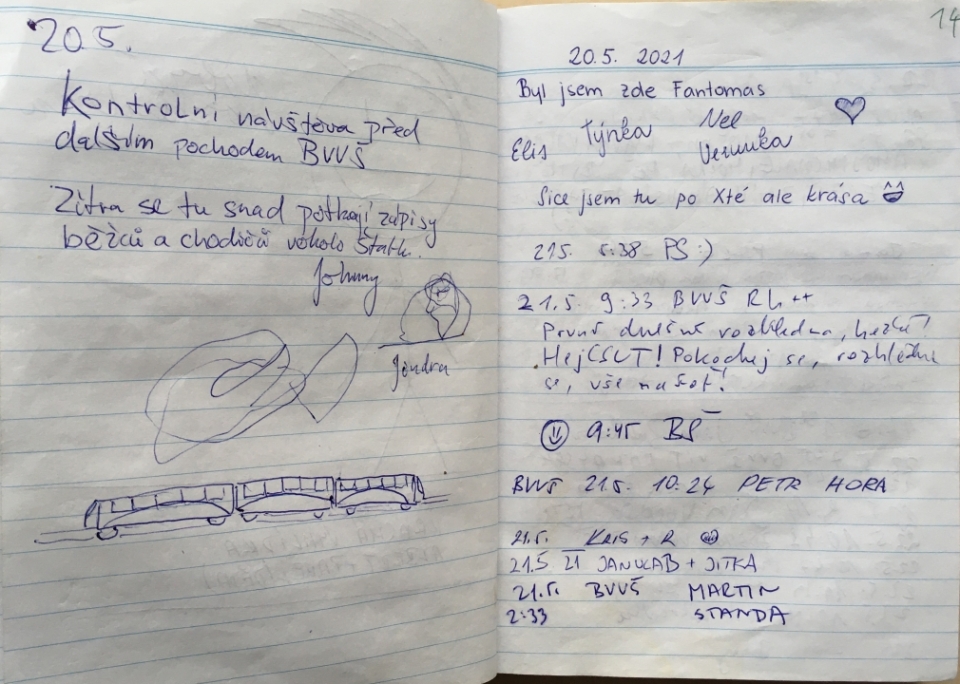 20.5.
Kontrolní návštěva před
dalším pochodem BVVŠ
Zítra se tu snad potkají zápisy
běžců a chodičů vokolo Štatlu.
Johnny
Jondra
14
20.5. 2021
Byl jsem zde Fantomas
Elis Týnka Nel
Verunka
Sice jsem tu po Xté ale krása
21.5. 5:38 PS :)
21.5. 9:33 BVVŠ
První dnešní rozhledna, hezká!
Hej Pokochej se, rozhlédni
se, vše na
9:45 BŠ
BVVŠ 21.5. 10:24 PETR HORA
21.5. KRIS + R
21.5 21 + JITKA
21.5. BVVŠ MARTIN
2:33 STANDA